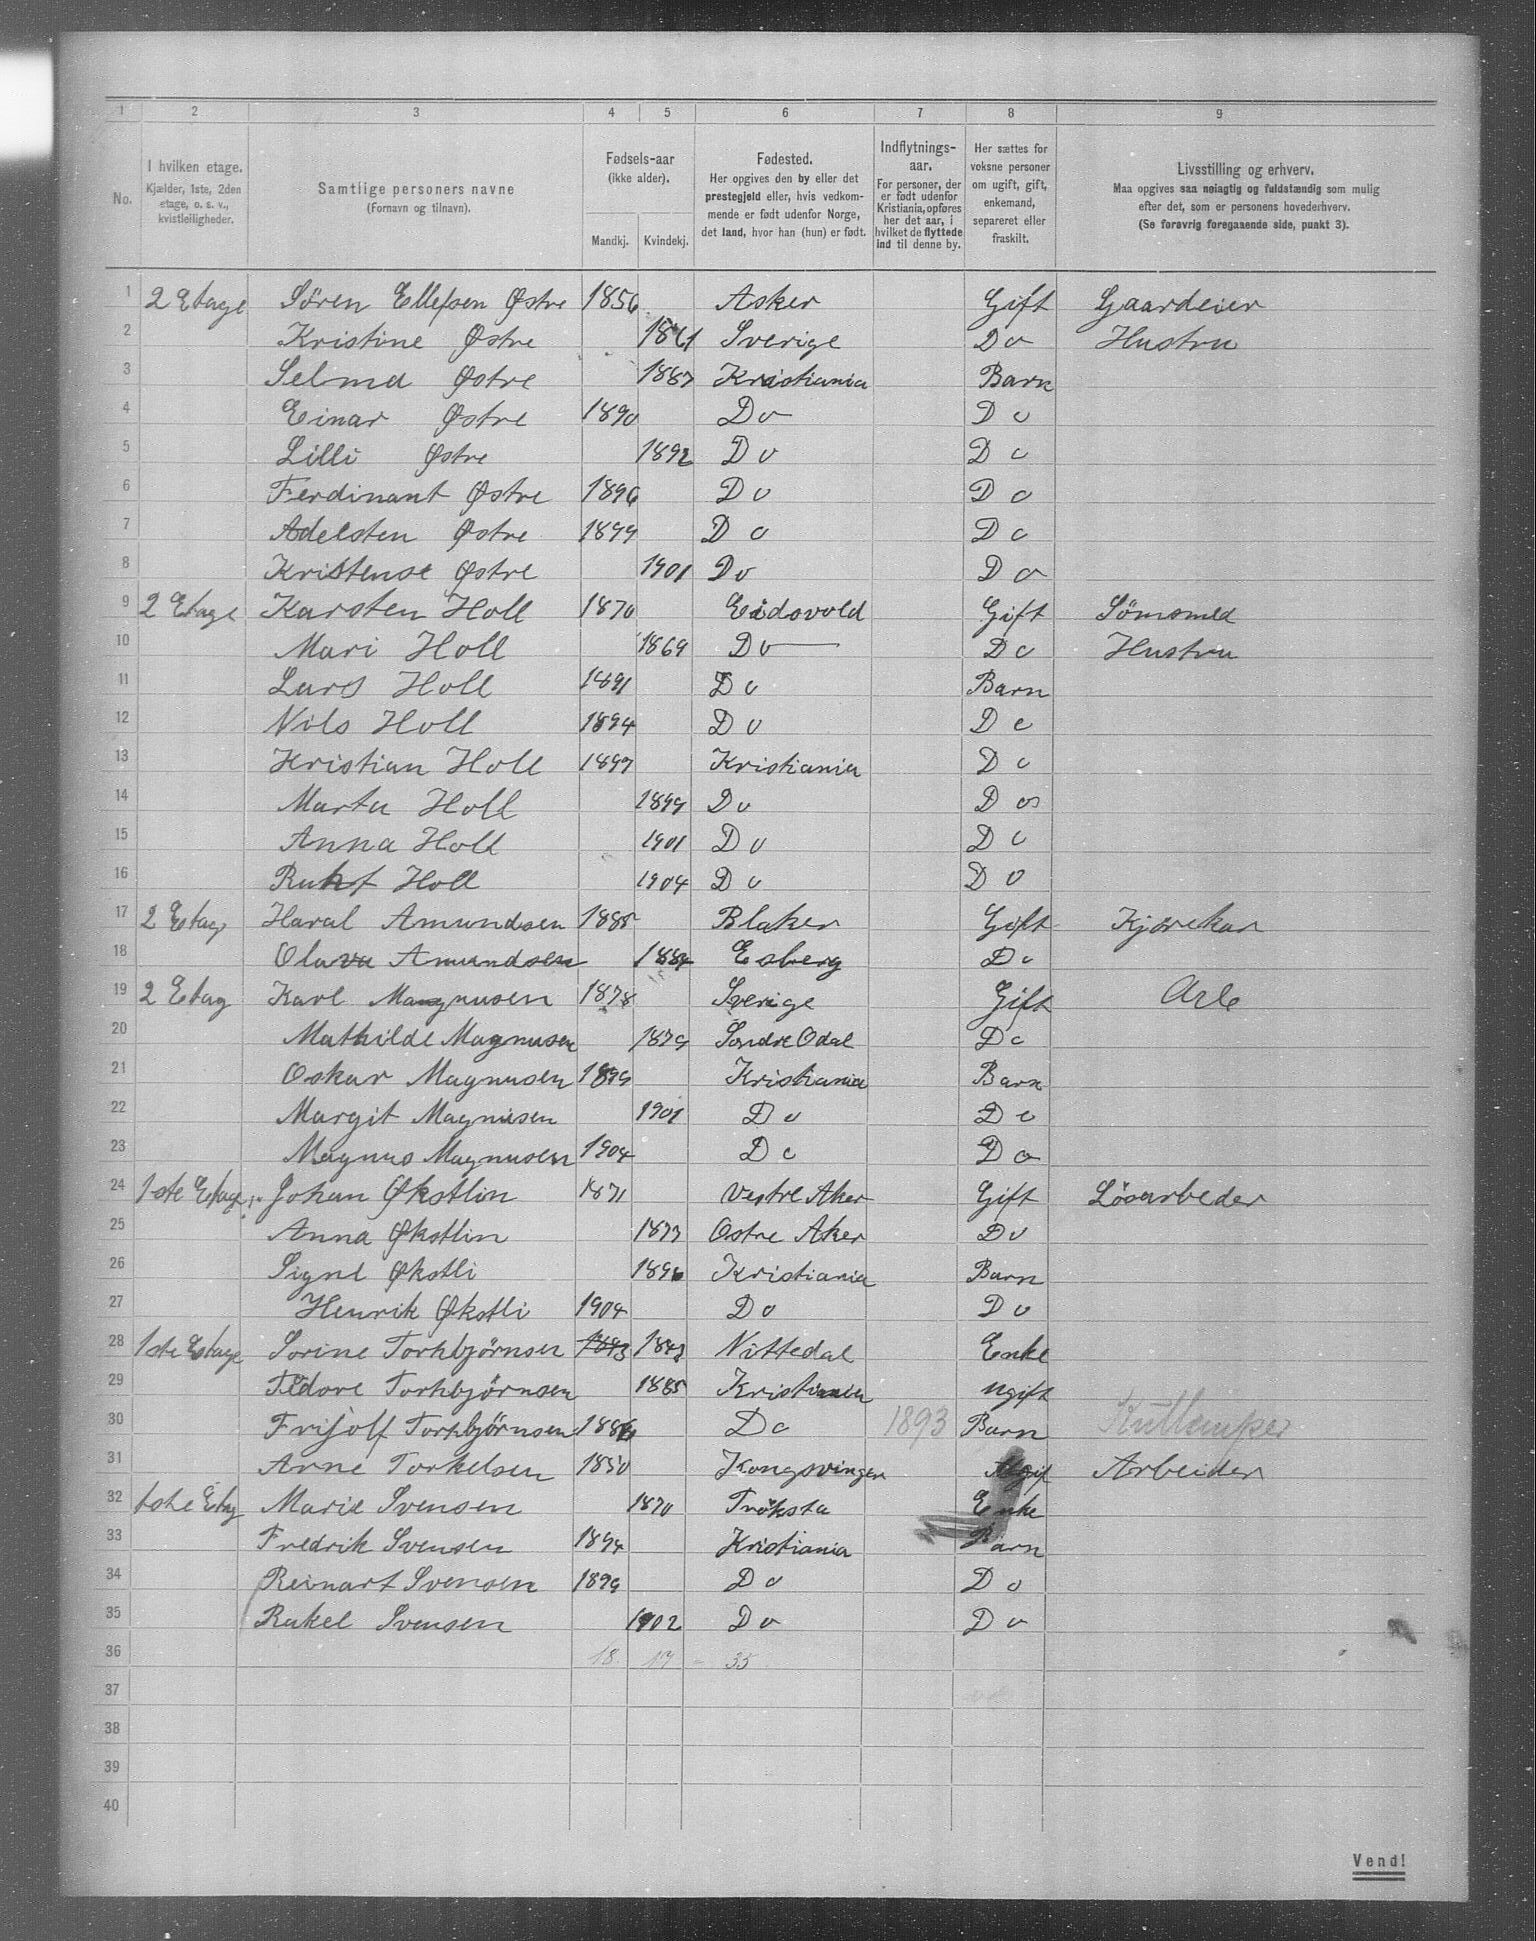 1 2 3 4 5 6 7 8 9
No. I hvilken etage. Kjælder, 1ste, 2den etage, o. s. v., kvistleiligheder. Samtlige personers navne (Fornavn og tilnavn). Fødsels-aar (ikke alder). Mandkj. Kvindekj. Fødested. Her opgives den by eller det prestegjeld eller, hvis vedkommende er født udenfor Norge, det land, hvor han (hun) er født. Indflytnings-aar. For personer, der er født udenfor Kristiania, opføres her det aar, i hvilket de flyttede ind til denne by. Her sættes for voksne personer om ugift, gift, enkemand, separeret eller fraskilt. Livsstilling og erhverv. Maa opgives saa nøiagtig og fuldstændig som mulig efter det, som er personens hovederhverv. (Se forøvrig foregaaende side, punkt 3).
1 2 Etage Sören Ellefsen Østre 1856 Asker Gift Gaardeier
2 Kristine Østre 1861 Sverige Do Hustru
3 Selma Østre 1887 Kristiania Barn
4 Einar Østre 1890 Do Do
5 Lilli Østre 1892 Do Do
6 Ferdinant Østre 1896 Do Do
7 Adelsten Østre 1899 Do Do
8 Kristense Østre 1901 Do Do
9 2 Etage Karsten Holl 1870 Eidsvold Gift Sömsmed
10 Mari Holl 1869 Do Do Hustru
11 Lars Holl 1891 Do Barn
12 Nils Holl 1894 Do Do
13 Kristian Holl 1897 Kristiania Do
14 Marta Holl 1899 Do Do
15 Anna Holl 1901 Do Do
16 Holl 1904 Do Do
17 2 Etag Haral Amundsen 1885 Blaker Gift Kjørekar
18 Olava Amundsen 1884 Esberg Do
19 2 Etag Karl Magnusen 1878 Sverige Gift Arb
20 Mathilde Magnusen 1879 Søndre Odal Do
21 Oskar Magnusen 1899 Kristiania Barn
22 Margit Magnusen 1901 Do Do
23 Magnus Magnusen 1904 Do Do
24 1ste Etage Johan Økstlin 1871 Vestre Aker Gift Lösarbeder
25 Anna Økstlin 1873 Ostre Aker Do
26 Signe Økstli 1896 Kristiania Barn
27 Henrik Økstli 1904 Do Do
28 1ste Etage Sorine Torkbjörnsen 1843 1843 Nittedal Enke
29 Torkbjörnsen 1885 Kristiania ugift
30 Fritjolf Torkbjörnsen Do 1893 Barn
31 Arne Torkelsen 1850 Kongsvinger Arbeider
32 1ste Etag Marie Svensen 1870 Tröksta Enke
33 Fredrik Svensen 1894 Kristiania Barn
34 Reinart Svensen 1899 Do Do
35 Rakel Svensen 1902 Do Do
36 18 17 – 35
37
38
39
40
Vend!